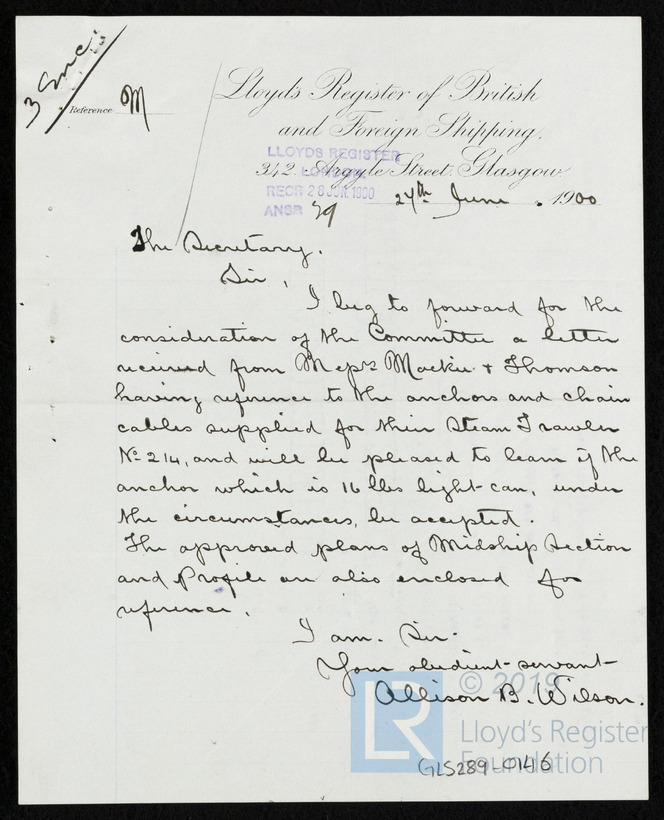 3 Enc:
Reference M
Lloyd's Register of British
and Foreign Shipping.
342, Argyle Street, Glasgow
LLOYDS REGISTER
LONDON
RECR 28 JUN. 1900
ANSR 29
27th June . 1900
The Secretary.
Sir,
I beg to forward for the
consideration of the Committee a letter
received from Messrs Mackie & Thomson
having reference to the anchors and chain
cables supplied for their Steam Trawler
No 214, and will be pleased to learn if the
anchor which is 16 lbs light can, under
the circumstances, be accepted.
The approved plans of Midship Section
and Profile are also enclosed for
reference.
I am. Sir.
Your obedient servant
Allison B. Wilson.
© 2019
LR
Lloyd's Register
Foundation
GLS289-0146